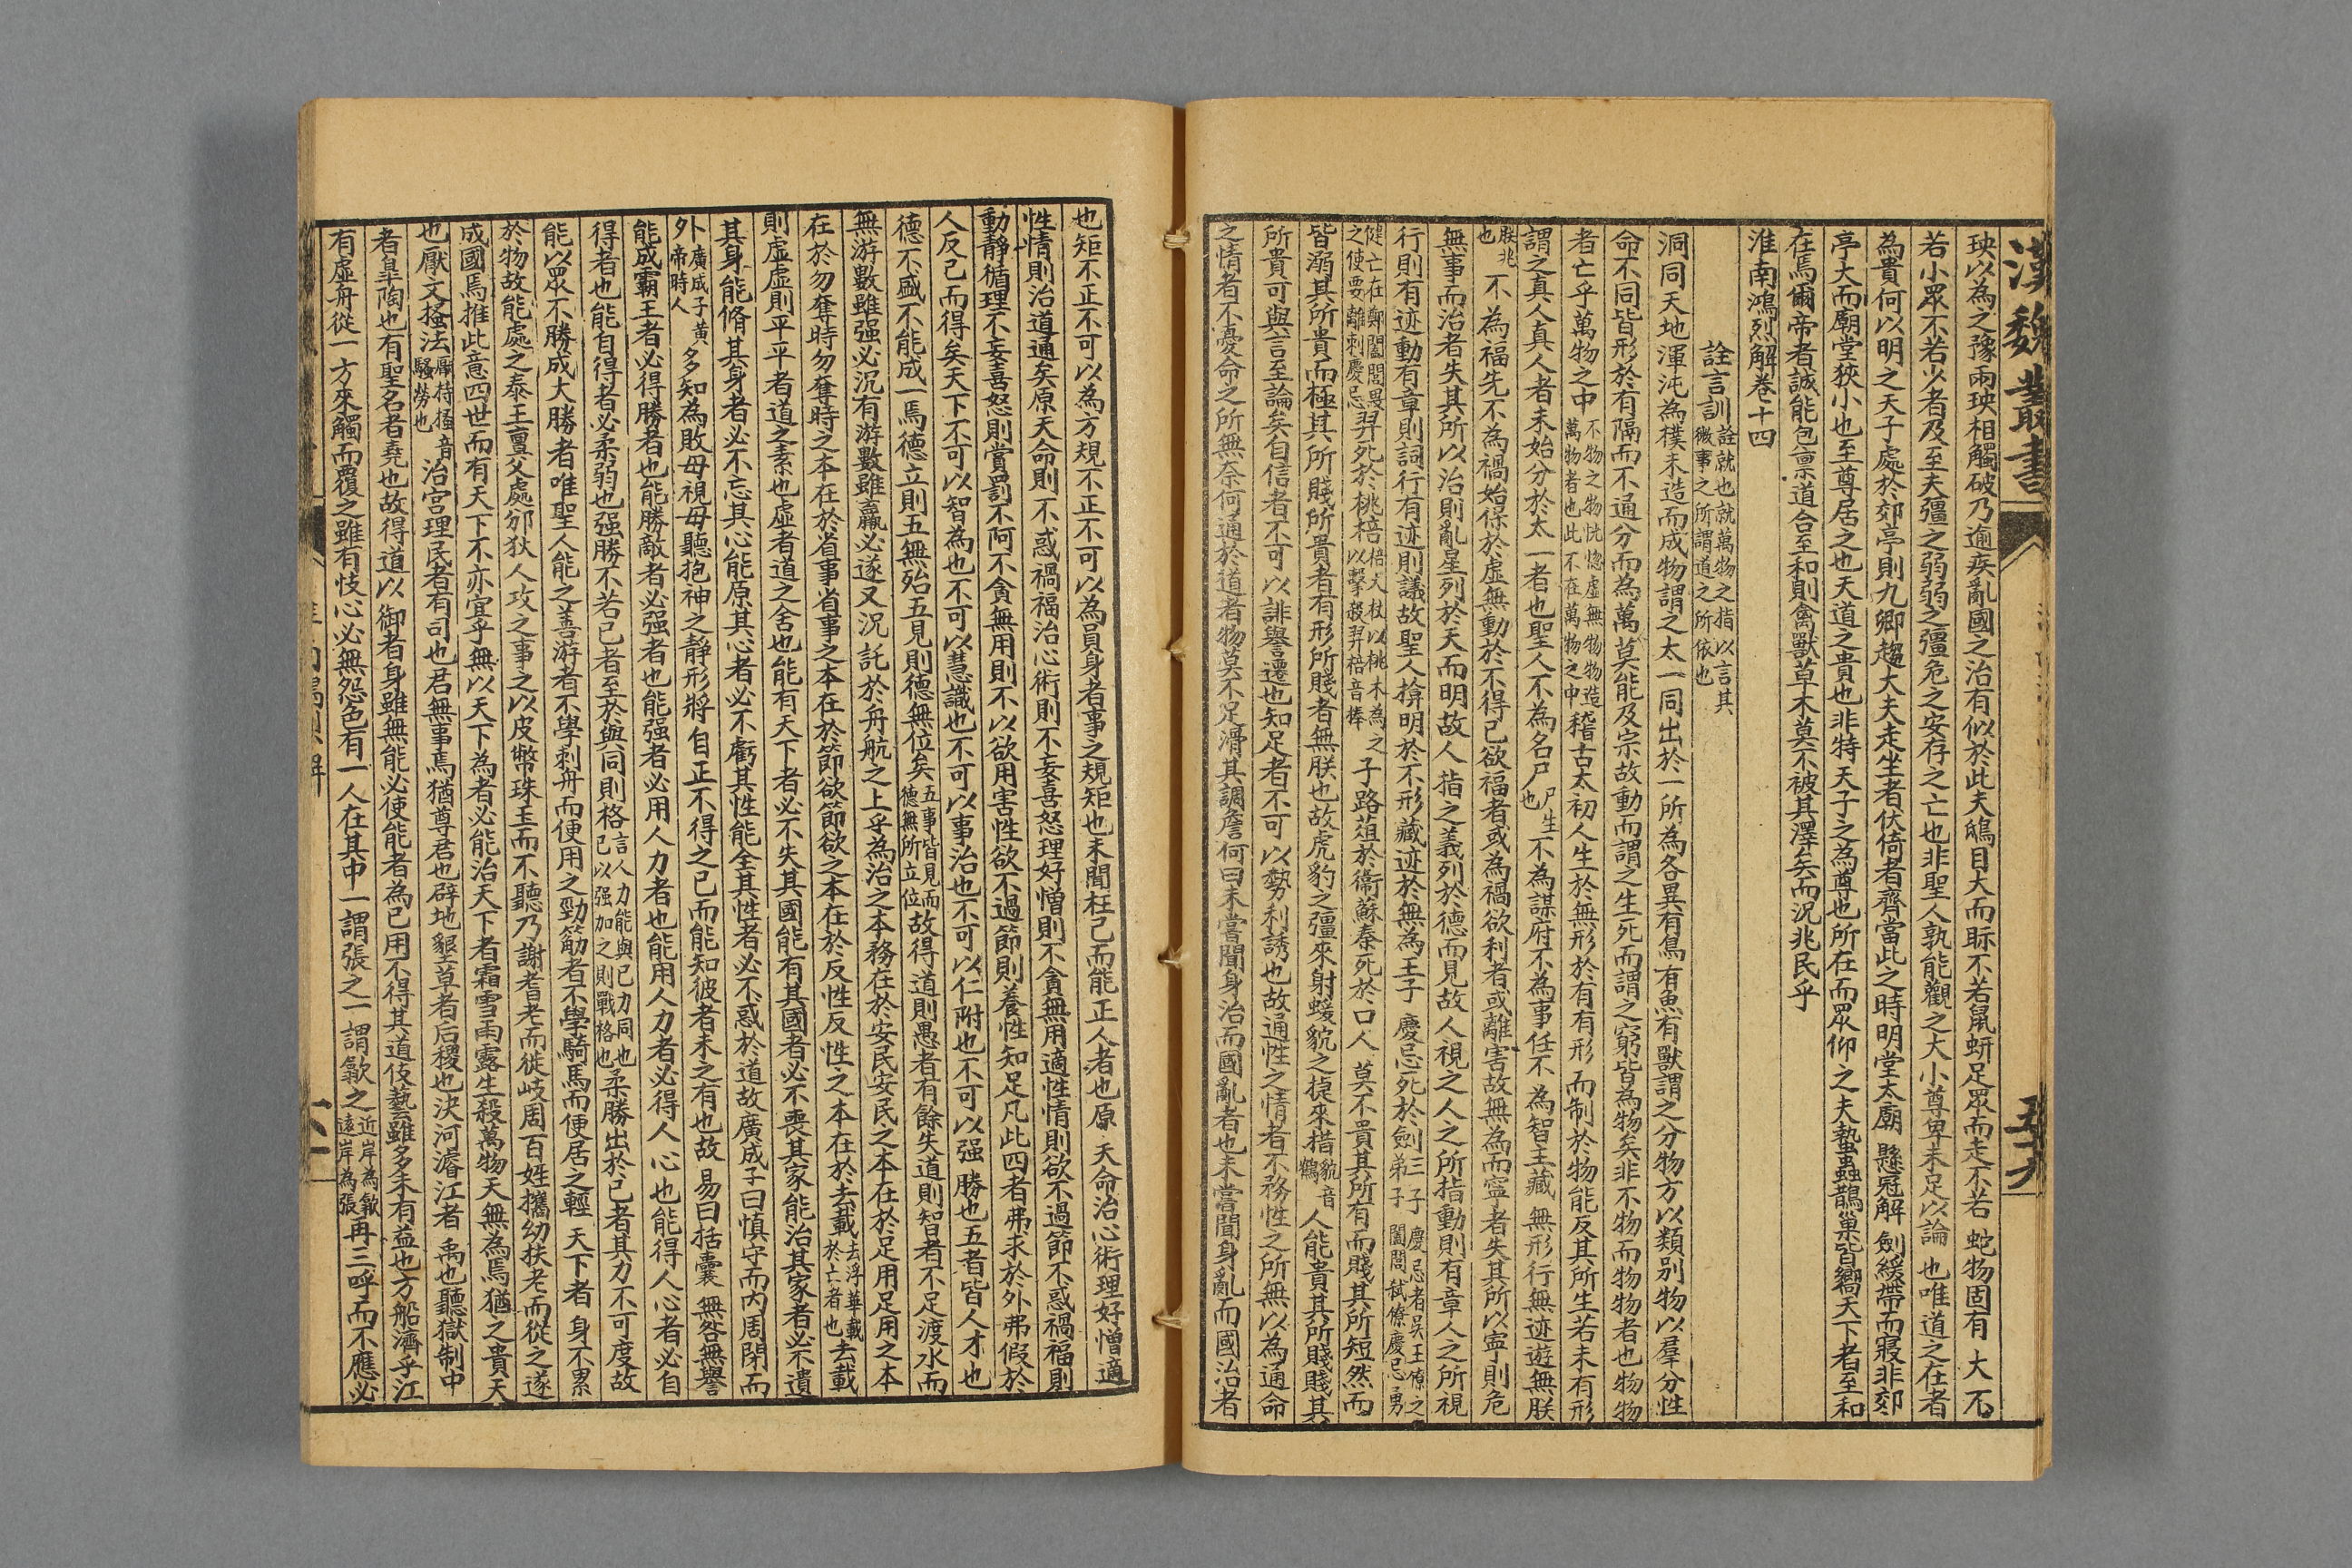 漢魏叢書
玦以為之豫兩玦相觸破乃逾疾亂國之治有似於此夫鴟目大而眎不若鼠蚈足眾而走不若蛇物固有大不
若小眾不若少者及至夫彊之弱弱之彊危之安存之亡也非聖人孰能觀之大小尊卑未足以論也唯道之在者
為貴何以明之天子處於郊亭則九卿趨大夫走坐者伏倚者齊當此之時明堂太廟懸冠解劍緩帶而寢非郊
亭大而廟堂狹小也至尊居之也天道之貴也非特天子之為尊也所在而眾仰之夫蟄蟲鵲巢皆嚮天下者至和
在焉爾帝者誠能包禀道合至和則禽獸草木莫不被其澤矣而況兆民乎
淮南鴻烈解卷十四
詮言訓詮就也就萬物之指以言其微事之所謂道之所依也
洞同天地渾沌為樸未造而成物謂之太一同出於一所為各異有鳥有魚有獸謂之分物方以類別物以羣分性
命不同皆形於有隔而不通分而為萬莫能及宗故動而謂之生死而謂之窮皆為物矣非不物而物物者也物物
者亡乎萬物之中不物之物恍惚虛無物物造萬物者也此不在萬物之中稽古太初人生於無形於有有形而制於物能反其所生若未有形
謂之真人真人者未始分於太一者也聖人不為名尸尸生也不為謀府不為事任不為智主藏無形行無迹遊無朕
朕兆也不為福先不為禍始保於虛無動於不得已欲福者或為禍欲利者或離害故無為而寧者失其所以寧則危
無事而治者失其所以治則亂星列於天而明故人指之義列於德而見故人視之人之所指動則有章人之所視
行則有迹動有章則詞行有迹則議故聖人揜明於不形藏迹於無為王子慶忌死於劍三子慶忌者吳王僚之弟子闔閭弒僚慶忌勇
健亡在鄭闔閭畏之使要離刺慶忌羿死於桃棓棓大杖以桃木為之以擊殺羿棓音棒子路葅於衞蘇秦死於口人莫不貴其所有而賤其所短然而
皆溺其所貴而極其所賤所貴者有形所賤者無朕也故虎豹之彊來射蝯貁之捷來措貁音鶴人能貴其所賤賤其
所貴可與言至論矣自信者不可以誹譽遷也知足者不可以勢利誘也故通性之情者不務性之所無以為通命
之情者不憂命之所無奈何通於道者物莫不足滑其調詹何曰未嘗聞身治而國亂者也未嘗聞身亂而國治者
也矩不正不可以為方規不正不可以為員身者事之規矩也未聞枉己而能正人者也原天命治心術理好憎適
性情則治道通矣原天命則不惑禍福治心術則不妄喜怒理好憎則不貪無用適性情則欲不過節不惑禍福則
動靜循理不妄喜怒則賞罰不阿不貪無用則不以欲用害性欲不過節則養性知足凡此四者弗求於外弗假於
人反己而得矣天下不可以智為也不可以慧識也不可以事治也不可以仁附也不可以强勝也五者皆人才也
德不盛不能成一焉德立則五無殆五見則德無位矣五事皆見而德無所立位故得道則愚者有餘失道則智者不足渡水而
無游數雖强必沉有游數雖羸必遂又況託於舟航之上乎為治之本務在於安民安民之本在於足用足用之本
在於勿奪時勿奪時之本在於省事省事之本在於節欲節欲之本在於反性反性之本在於去載去浮華載於亡者也去載
則虛虛則平平者道之素也虛者道之舍也能有天下者必不失其國能有其國者必不喪其家能治其家者必不遺
其身能脩其身者必不忘其心能原其心者必不虧其性能全其性者必不惑於道故廣成子曰慎守而內周閉而
外廣成子黃帝時人多知為敗毋視毋聽抱神之靜形將自正不得之己而能知彼者未之有也故易曰括囊無咎無譽
能成霸王者必得勝者也能勝敵者必强者也能强者必用人力者也能用人力者必得人心也能得人心者必自
得者也能自得者必柔弱也强勝不若己者至於與同則格言人力能與已力同也已以强加之則戰格也柔勝出於己者其力不可度故
能以眾不勝成大勝者唯聖人能之善游者不學剌舟而便用之勁筋者不學騎馬而便居之輕天下者身不累
於物故能處之泰王亶父處邠狄人攻之事之以皮幣珠玉而不聽乃謝耆老而徙岐周百姓攜幼扶老而從之遂
成國焉推此意四世而有天下不亦宜乎無以天下為者必能治天下者霜雪雨露生殺萬物天無為焉猶之貴天
也厭文搔法厭持搔音騷勞也治宮理民者有司也君無事焉猶尊君也辟地墾草者后稷也決河濬江者禹也聽獄制中
者皐陶也有聖名者堯也故得道以御者身雖無能必使能者為己用不得其道伎藝雖多未有益也方船濟乎江
有虛舟從一方來觸而覆之雖有忮心必無怨色有一人在其中一謂張之一謂歙之近岸為歙遠岸為張再三呼而不應必